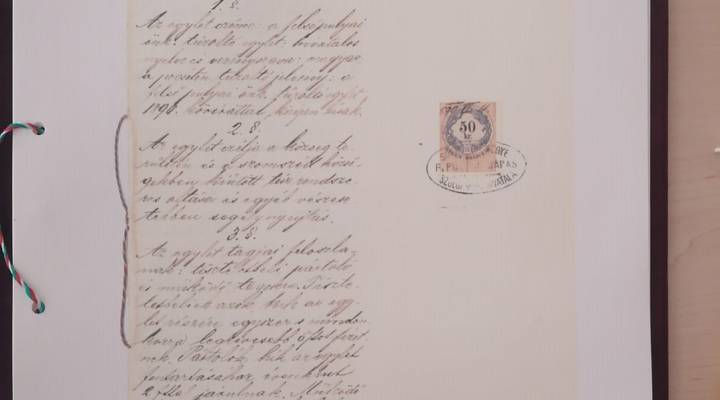 1. §.
Az egylet czíme: a felsőpulyai
önk. tűzoltó egylet; hivatalos
nyelve és vezényszava: magyar
a pecsétén tűzoltó jelvény: a
felső pulyai önk. tűzoltó egylet
1890. körirattal, középen
2. §.
Az egylet czélja a község te-
rületén és a szomszéd közsé-
gekben kiütött tűz rendsze-
res oltása és egyéb vészese-
tekben segélynyujtás.
3. §.
Az egylet tagjai feloszla-
nak: tiszteletbeli pártoló
és működő tagokra. Tiszte-
letbeliek azok, kik az egy-
let részére egyszer s minden-
korra legkevesebb 5 frtot fizet-
nek. Pártolók, kik az egylet
fentartásához évenként
2 frttal járulnak. Működő
50
kr.